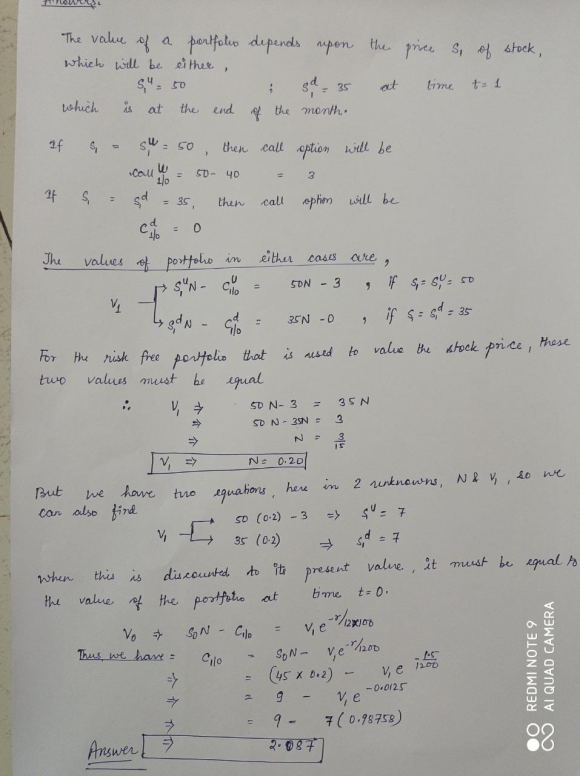 Answers:
The value of a portfolio depends upon the price S₁ of stock,
which will be either,
S₁ᵘ = 50 ; S₁ᵈ = 35 at time t = 1
which is at the end of the month.
If S₁ = S₁ᵘ = 50, then call option will be
call ᵘ 1/0 = 50 - 40 = 3
If S₁ = S₁ᵈ = 35, then call option will be
Cᵈ 1/0 = 0
The values of portfolio in either cases are,
S₁ᵘN - Cᵘ 1/0 = 50N - 3 , if S₁ = S₁ᵘ = 50
V₁
S₁ᵈN - Cᵈ 1/0 = 35N - 0 , if S = S₁ᵈ = 35
For the risk free portfolio that is used to value the stock price, these
two values must be equal
∴ V₁ ⇒ 50N - 3 = 35N
⇒ 50N - 35N = 3
⇒ N = 3/15
V₁ ⇒ N = 0.20
But we have two equations, here in 2 unknowns, N & V₁, so we
can also find
50 (0.2) - 3 ⇒ S₁ᵘ = 7
V₁
35 (0.2) ⇒ S₁ᵈ = 7
When this is discounted to its present value, it must be equal to
the value of the portfolio at time t = 0.
V₀ ⇒ S₀N - C1/0 = V₁e^-r/12x100
Thus we have = C1/0 = S₀N - V₁e^-r/1200
⇒ = (45 x 0.2) - V₁e^-1.5/1200
⇒ = 9 - V₁e^-0.0125
⇒ = 9 - 7(0.98758)
Answer ⇒ 2.087
REDMI NOTE 9
AI QUAD CAMERA